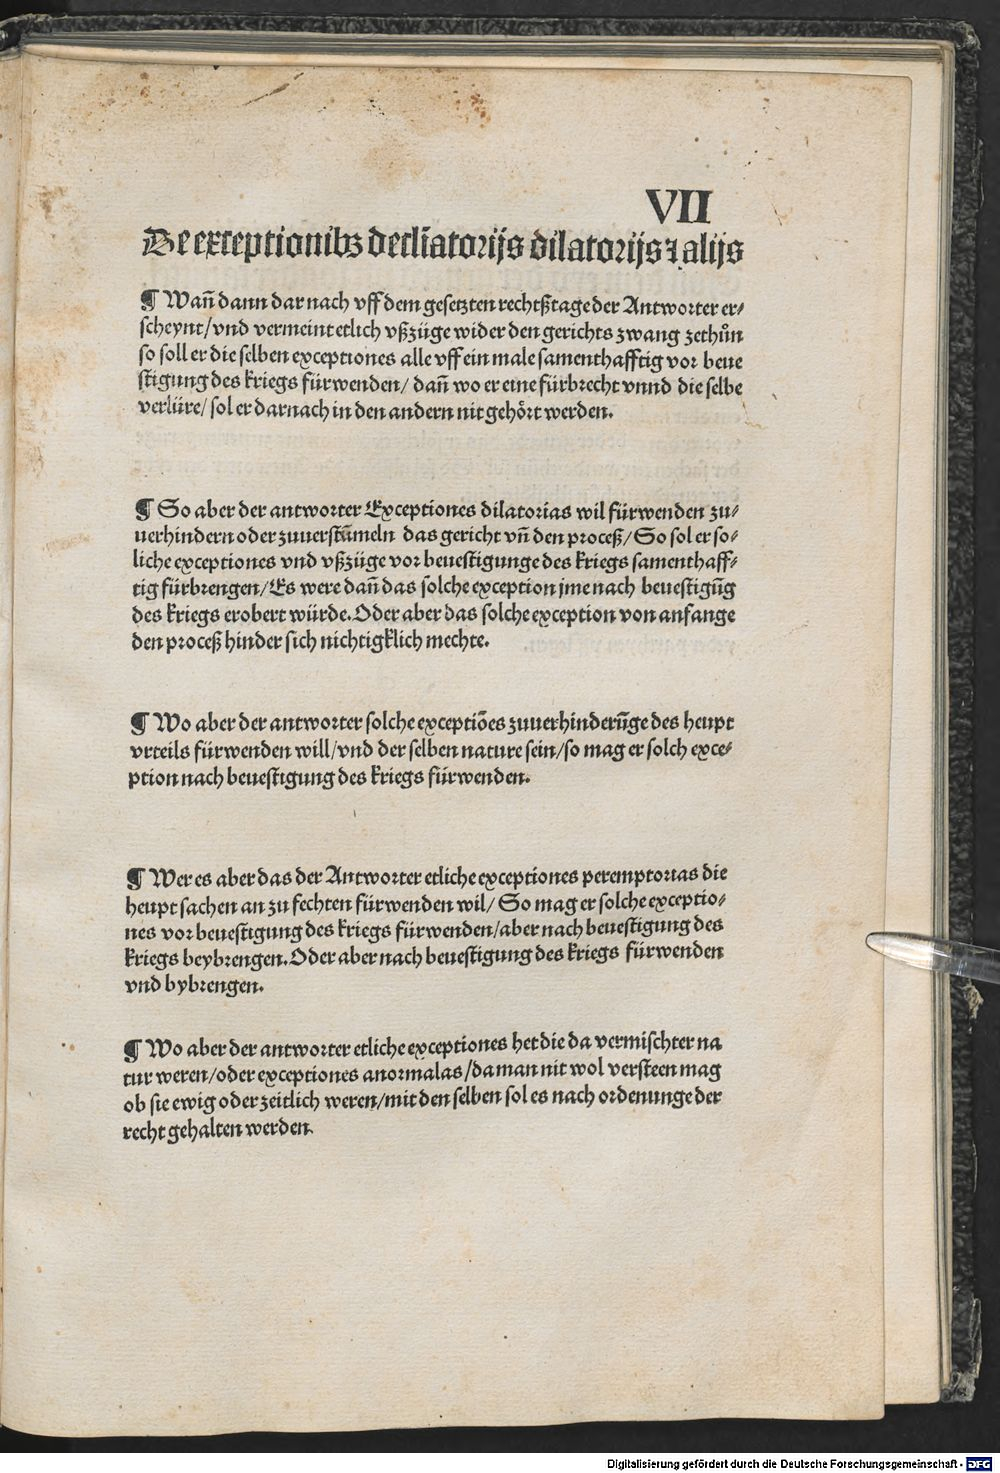 VII
De exceptionibꝫ decli̅atorijs dilatorijs ⁊ alijs
¶ Wan̅ dann dar nach vff dem gesetzten rechtßtage der Antworter er⸗
scheynt/vnd vermeint etlich vßzüge wider den gerichts zwang zethůn
so soll er die selben exceptiones alle vff ein male samenthafftig vor beue
stigung des kriegs fürwenden/ dan̅ wo er eine fürbrecht vnnd die selbe
verlüre/ sol er darnach in den andern nit gehört werden.
¶ So aber der antworter Exceptiones dilatorias wil fürwenden zu⸗
uerhindern oder zuuerstu̅meln das gericht vn̅ den proceß/ So sol er so⸗
liche exceptiones vnd vßzüge vor beuestigunge des kriegs samenthaff⸗
tig fürbrengen/Es were dan̅ das solche exception jme nach beuestigu̅g
des kriegs erobert würde. Oder aber das solche exception von anfange
den proceß hinder sich nichtigklich mechte.
¶ Wo aber der antworter solche exceptio̅es zuuerhinderu̅ge des heupt
vrteils fürwenden will/vnd der selben nature sein/so mag er solch exce⸗
ption nach beuestigung des kriegs fürwenden.
¶ Wer es aber das der Antworter etliche exceptiones peremptorias die
heupt sachen an zu fechten fürwenden wil/ So mag er solche exceptio⸗
nes vor beuestigung des kriegs fürwenden/aber nach beuestigung des
kriegs beybrengen. Oder aber nach beuestigung des kriegs fürwenden
vnd bybrengen.
¶ Wo aber der antworter etliche exceptiones het die da vermischter na
tur weren/oder exceptiones anormalas/da man nit wol versteen mag
ob sie ewig oder zeitlich weren/mit den selben sol es nach ordenunge der
recht gehalten werden.
Digitalisierung gefördert durch die Deutsche Forschungsgemeinschaft - DFG